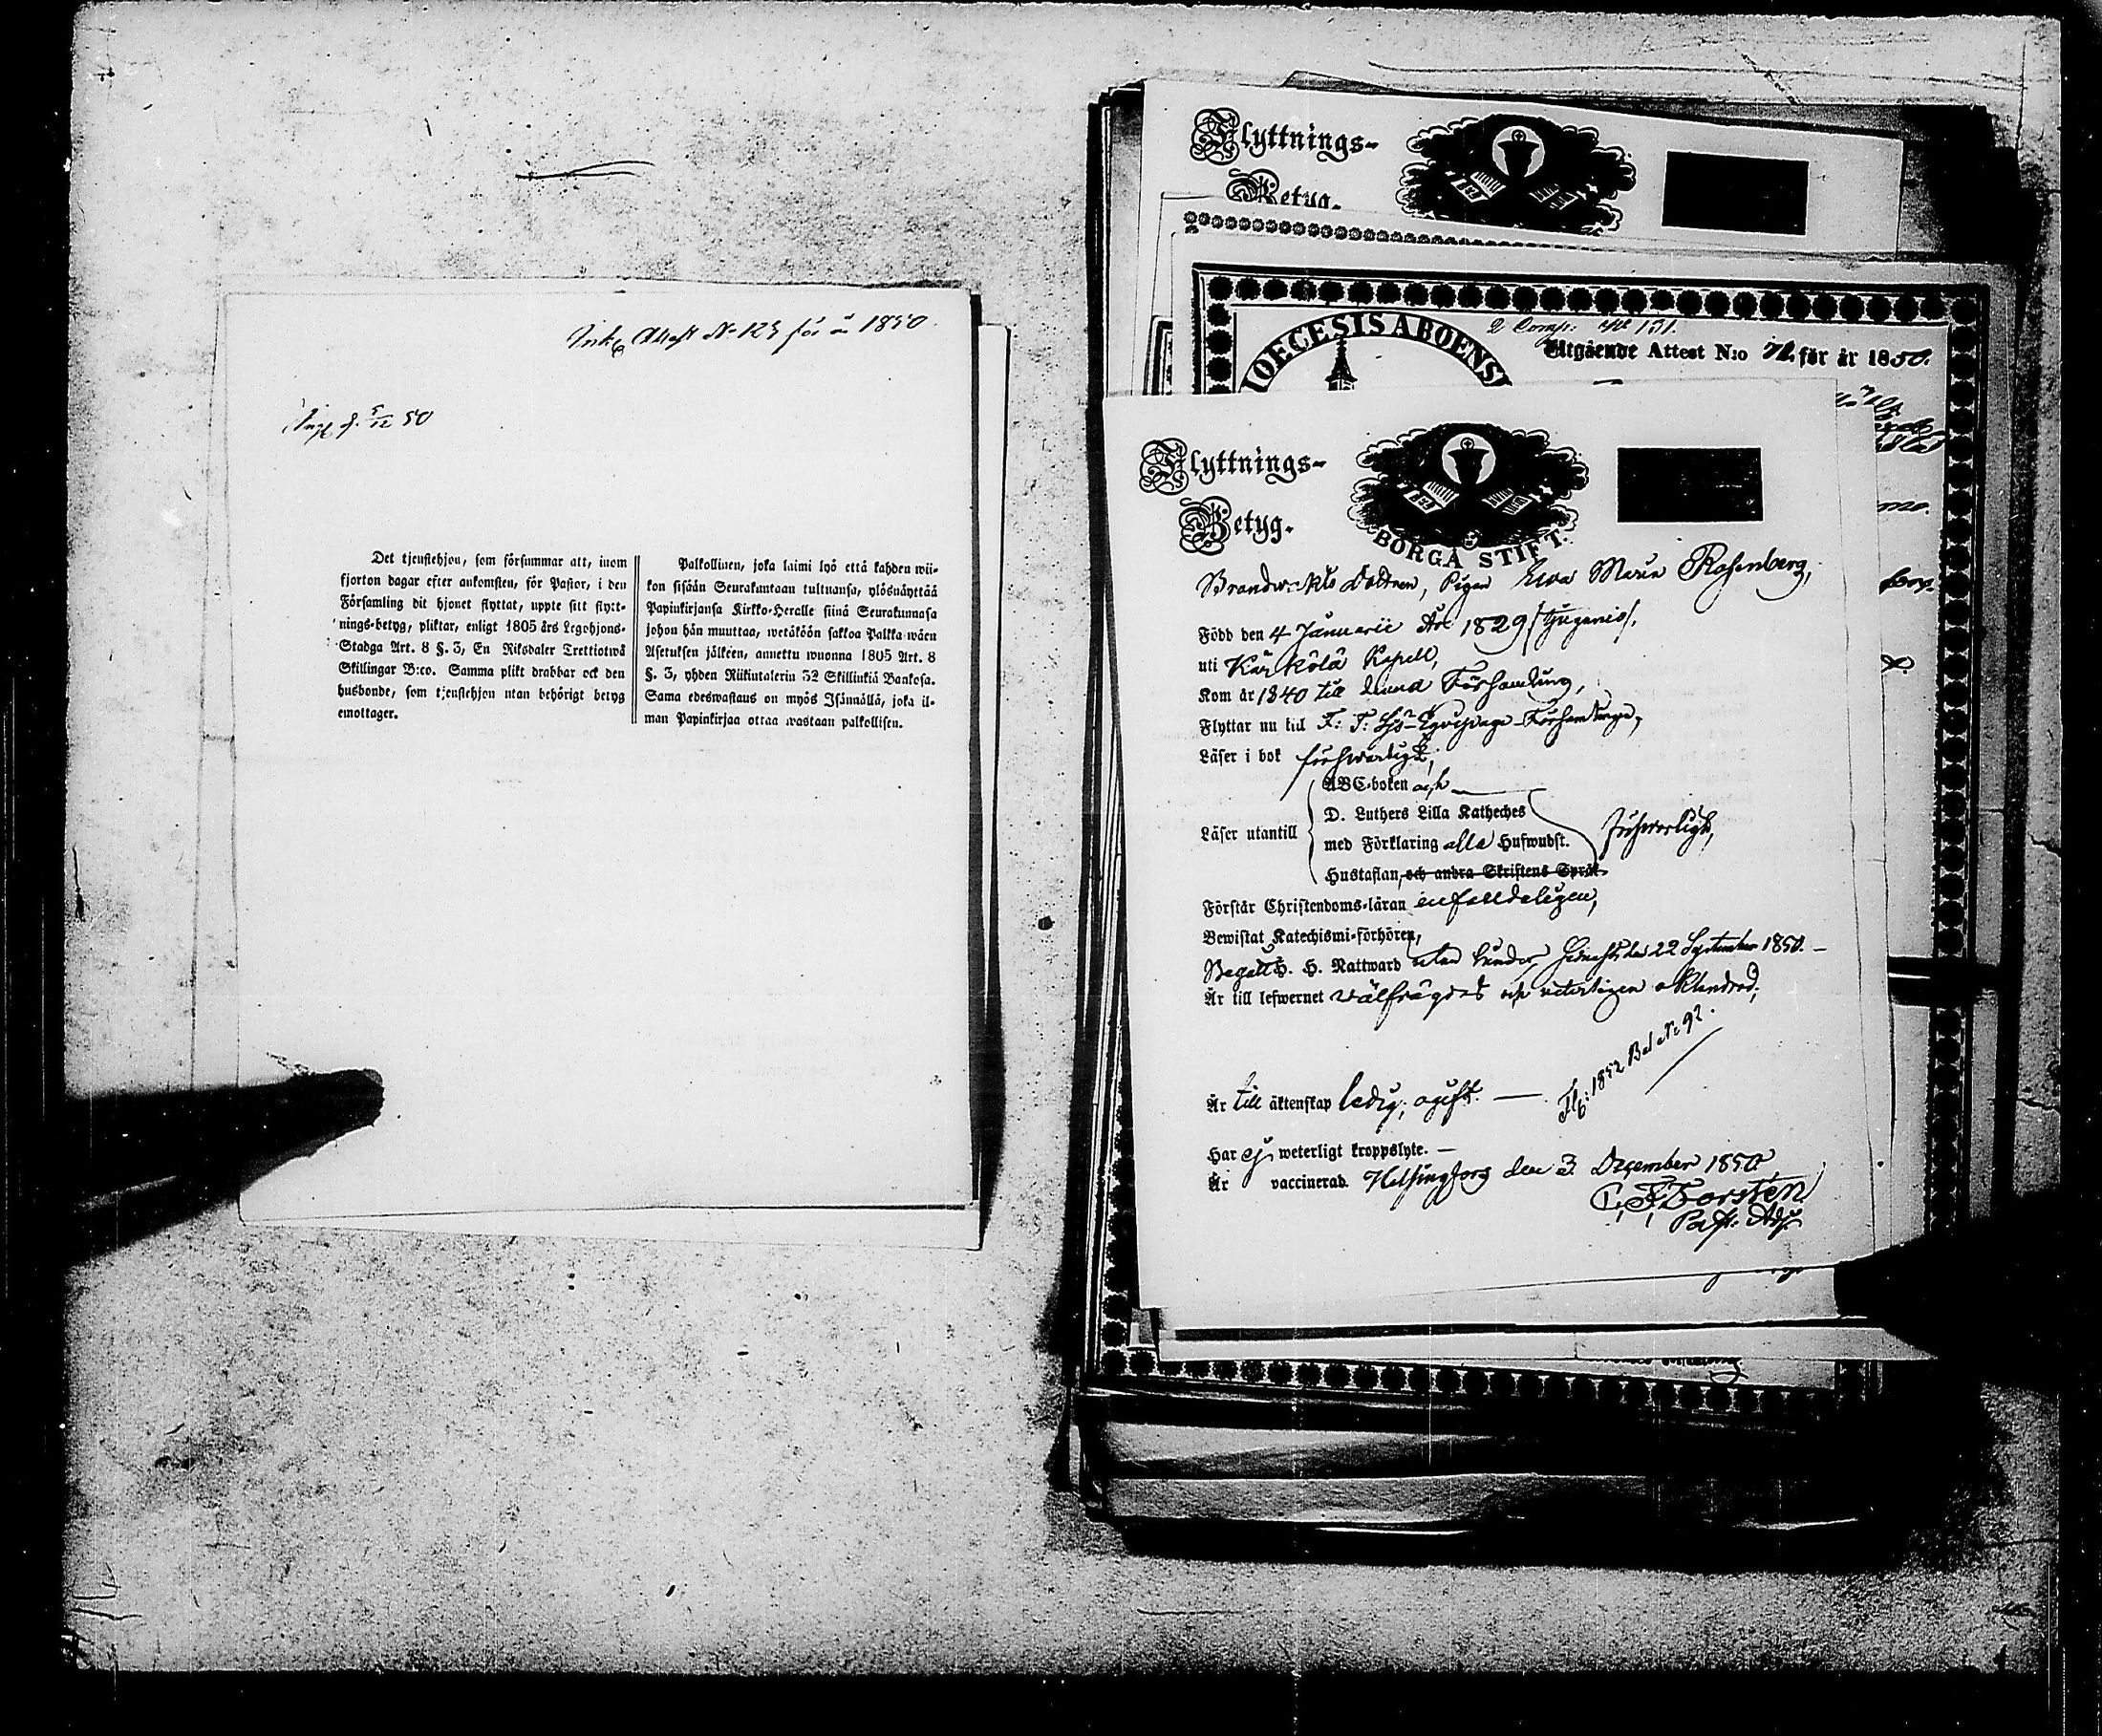 Attest No 125 för år 1850.
50
Det tjenstehjon, som försummar att, inom
fjorton dagar efter ankomsten, för Pastor, i den
Församling dit hjonet flyttat, uppte sitt flytt-
nings-betyg, pliktar, enligt 1805 års Legohjons-
Stadga Art. 8 §. 3, En Riksdaler Trettiotwå
Skillingar B:co. Samma plikt drabbar ock den
husbonde, som tjenstehjon utan behörigt betyg
emottager.
Palkollinen, joka laimi lyö että kahden wii-
kon sisään Seurakuntaan tultuansa, ylösnäyttää
Papinkirjansa Kirkko-Heralle siinä Seurakunnasa
johon hän muuttaa, wetäköön sakkoa Palkka-wäen
Asetuksen jälkeen, annettu wuonna 1805 Art. 8
§. 3, yhden Riikintalerin 32 Skillinkiä Bankosa.
Sama edeswastaus on myös Isännällä, joka il-
man Papinkirjaa ottaa wastaan palkollisen.
Flyttnings-
Betyg.
DIOECESIS ABOENSI
Utgående Attest N:o för år 1850.
Flyttnings-
Betyg.
BORGÅ STIFT.
Dottren, Pigan Ewa Maria Rosenberg,
Född den 4 Januarii År 1829
uti Kärkölä Kapell,
Kom år 1840 till denna Församling,
Flyttar nu till F: F: Sjö-Equipage-Församlingen,
Läser i bok försvarligt,
ABC-boken och
D. Luthers Lilla Katheches
Läser utantill
med Förklaring alla Hufwudst.
försvarligt,
Hustaflan, och andra Skriftens Språk
Förstår Christendoms-läran enfaldeligen,
Bewistat Katechismi-förhören,
Begått H. H. Nattward utan hinder, sednast den 22 September 1850.
Är till lefwernet välfrägdad och veterligen oklandrad,
Fl: 1852 Bet. No 92.
Är till äktenskap ledig, ogift.
Har ej weterligt kroppslyte.
Är vaccinerad. Helsingfors den 3 December 1850
Past. Adj.